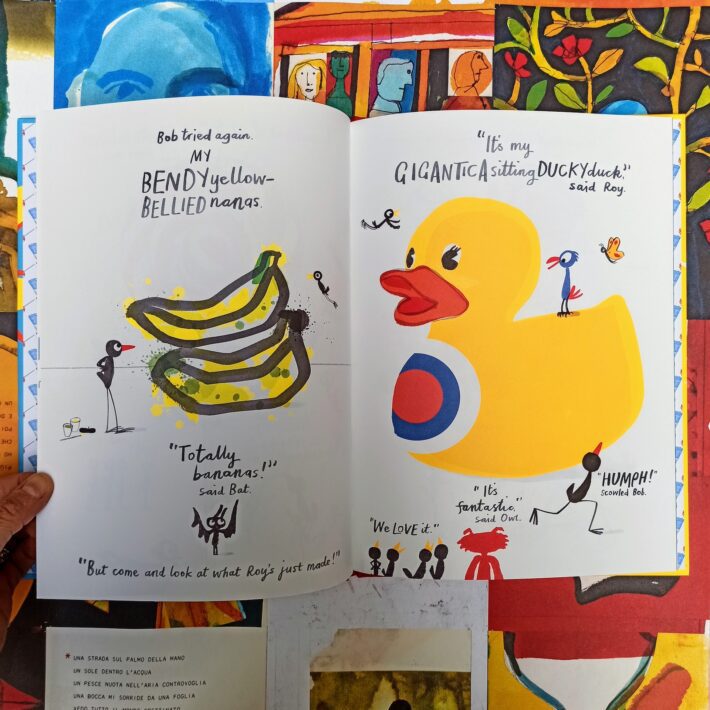 Bob tried again.
MY
BENDY yellow-
BELLIED nanas.
"Totally
bananas!"
said Bat.
"But come and look at what Roy's just made!"
"It's my
GIGANTICA sitting DUCKY duck."
said Roy.
"HUMPH!"
scowled Bob.
"It's
fantastic."
said Owl.
"We LOVE it."
* UNA STRADA SUL PALMO DELLA MANO
UN SOLE DENTRO L'ACQUA
UN PESCE NUOTA NELL'ARIA CONTROVOGLIA
UNA BOCCA MI SORRIDE DA UNA FOGLIA